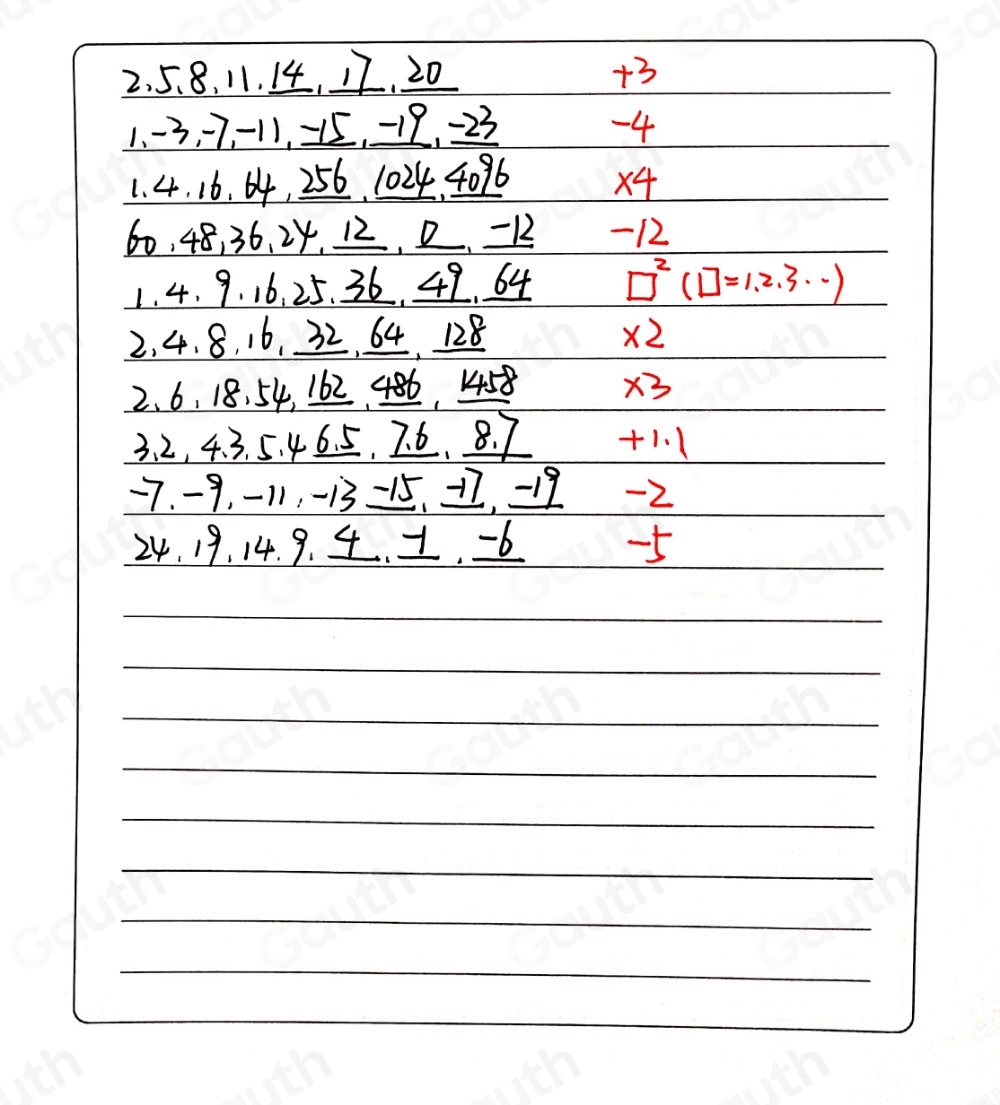 2, 5, 8, 11, 14, 17, 20 +3
1, -3, -7, -11, -15, -19, -23 -4
1, 4, 16, 64, 256, 1024, 4096 ×4
60, 48, 36, 24, 12, 0, -12 -12
1, 4, 9, 16, 25, 36, 49, 64 □² (□=1,2,3...)
2, 4, 8, 16, 32, 64, 128 ×2
2, 6, 18, 54, 162, 486, 1458 ×3
3.2, 4.3, 5.4 6.5, 7.6, 8.7 +1.1
-7, -9, -11, -13 -15, -17, -19 -2
24, 19, 14, 9, 4, -1, -6 -5
Gauth